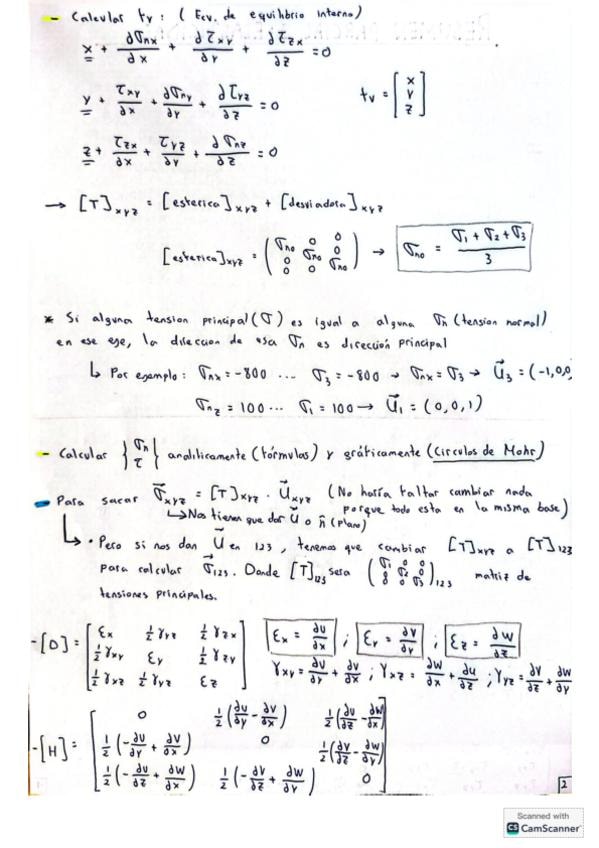 - Calcular fv : ( Ecu. de equilibrio interno)
x + ∂σnx/∂x + ∂τxy/∂y + ∂τzx/∂z = 0
y + τxy/∂x + ∂σny/∂y + ∂τyz/∂z = 0
fv = [x y z]
z + τzx/∂x + τyz/∂y + ∂σnz/∂z = 0
→ [T]xyz = [esferica]xyz + [desviadora]xyz
[esferica]xyz = (σno 0 0 0 σno 0 0 0 σno) → σno = σ1 + σ2 + σ3 / 3
* Si alguna tension principal (σ) es igual a alguna σn (tension normal)
en ese eje, la direccion de esa σn es dirección principal
↳ Por ejemplo: σnx = -800 ... σ3 = -800 → σnx = σ3 → u⃗3 = (-1,0,0
σnz = 100 ... σ1 = 100 → u⃗1 = (0,0,1)
- Calcular {σn τ} analiticamente (fórmulas) y gráficamente (Circulos de Mohr)
- Para sacar σ⃗xyz = [T]xyz · u⃗xyz (No haría faltar cambiar nada
porque todo esta en la misma base)
↳ Nos tienen que dar u⃗ o n̄ (plano)
↳ · Pero si nos dan u⃗ en 123, tenemos que cambiar [T]xyz a [T]123
para calcular σ⃗123. Donde [T]123 sera (σ1 0 0 0 σ2 0 0 0 σ3)123 matriz de
tensiones principales.
- [D] = [εx ½γyz ½γzx ½γxy εy ½γzy ½γxz ½γyz εz] εx = ∂u/∂x ; εy = ∂v/∂y ; εz = ∂w/∂z
γxy = ∂u/∂y + ∂v/∂x ; γxz = ∂w/∂x + ∂u/∂z ; γyz = ∂v/∂z + ∂w/∂y
- [H] = [0 ½(∂u/∂y - ∂v/∂x) ½(∂u/∂z - ∂w/∂x)
½(-∂u/∂y + ∂v/∂x) 0 ½(∂v/∂z - ∂w/∂y)
½(-∂u/∂z + ∂w/∂x) ½(-∂v/∂z + ∂w/∂y) 0]
2
Scanned with
CS CamScanner